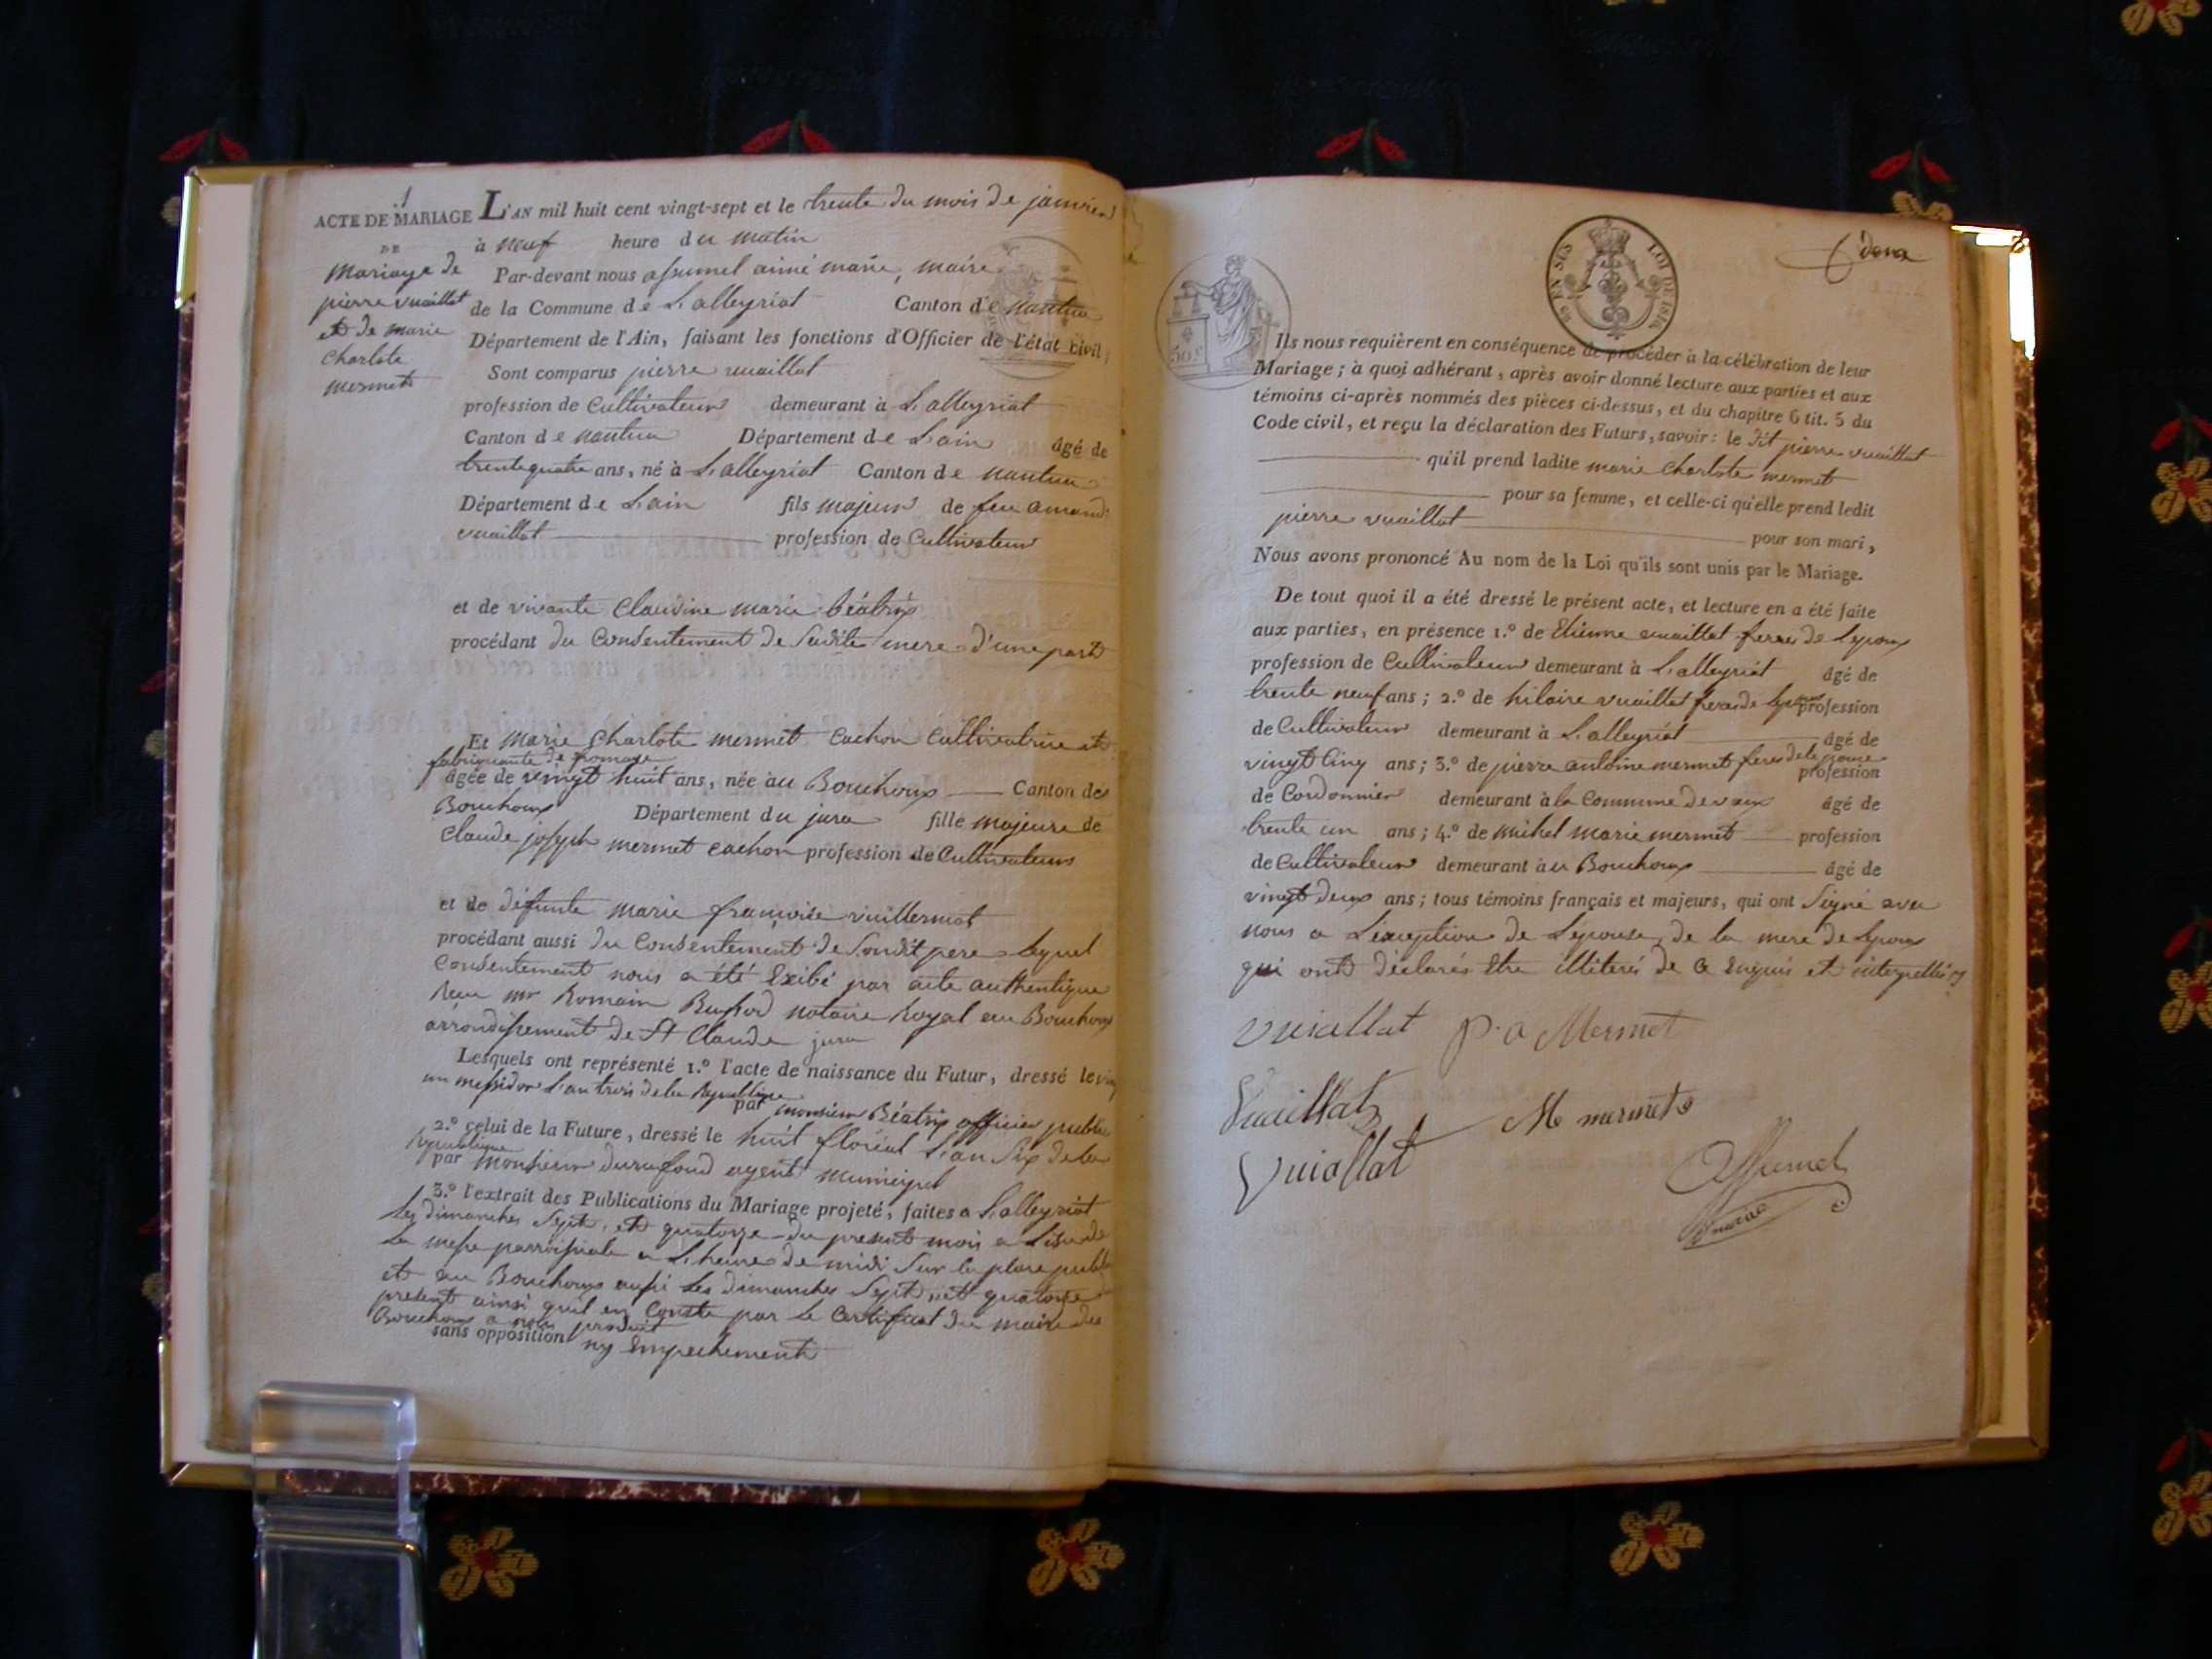 1
ACTE DE MARIAGE
DE
mariage de
pierre vuaillat
et de marie
charlote
mermet
L'AN mil huit cent vingt-sept et le trente du mois de janvier
à neuf heure du matin
Par-devant nous assumel aimé marie, maire
de la Commune de Lalleyriat Canton de nantua
Département de l'Ain, faisant les fonctions d'Officier de l'état civil,
Sont comparus pierre vuaillat
profession de Cultivateur demeurant à Lalleyriat
Canton de nantua Département de Lain âgé de
trente quatre ans, né à Lalleyriat Canton de nantua
Département de Lain fils majeur de feu amand
vuaillat profession de Cultivateur
et de vivante Claudine marie béatrix
procédant du Consentement de Sadite mere d'une part
Et marie charlote mermet Cachon Cultivatrice et
fabriquante de fromage
âgée de vingt huit ans, née au Bouchoux Canton des
Bouchoux Département du jura fille majeure de
Claude joseph mermet cachon profession de Cultivateurs
et de défunte marie françoise vuillermot
procédant aussi du Consentement de Sondit pere lequel
Consentement nous a été Exibé par acte authentique
Reçu mr Romain notaire Royal au Bouchoux
arrondissement de St Claude jura
Lesquels ont représenté 1.º l'acte de naissance du Futur, dressé le
un messidor L'an trois de la Republique
par monsieur Béatrix officier public
2.º celui de la Future, dressé le huit floréal L'an Six de la
Republique
par monsieur durafourd agent municipal
3.º l'extrait des Publications du Mariage projeté, faites a Lalleyriat
les dimanches Sept et quatorze du present mois a Lissue de
La messe parroissiale a Lheure de midi Sur la place publi
et au Bouchoux aussi les dimanches Sept et quatorze
present ainsi quil en Conste par le Certificat du maire des
Bouchoux a nous produit
sans opposition ny Empechement
deux
EN SUS LOI DE 1816
50 c
Ils nous requièrent en conséquence de procéder à la célébration de leur
Mariage ; à quoi adhérant, après avoir donné lecture aux parties et aux
témoins ci-après nommés des pièces ci-dessus, et du chapitre 6 tit. 5 du
Code civil, et reçu la déclaration des Futurs, savoir : le dit pierre vuaillat
qu'il prend ladite marie charlote mermet
pour sa femme, et celle-ci qu'elle prend ledit
pierre vuaillat
pour son mari,
Nous avons prononcé Au nom de la Loi qu'ils sont unis par le Mariage.
De tout quoi il a été dressé le présent acte, et lecture en a été faite
aux parties, en présence 1.º de Etienne vuaillat freres de Lepoux
profession de Cultivateur demeurant à Lalleyriat âgé de
trente neuf ans ; 2.º de hilaire vuaillat freres de Lepoux profession
de Cultivateur demeurant à Lalleyriat âgé de
vingt Cinq ans ; 3.º de pierre antoine mermet freres de Lepouse
profession
de Cordonnier demeurant à la Commune de vaux âgé de
trente un ans ; 4.º de michel marie mermet profession
de Cultivateur demeurant au Bouchoux âgé de
vingt deux ans ; tous témoins français et majeurs, qui ont Signé avec
nous a Lexception de Lepouse, de la mere de Lepoux
qui ont déclarés Etre illiterés de Ce Enquis et interpellés
vuiallat p. a Mermet
Vuaillat M mermet
Vuiallat
Assumel
maire